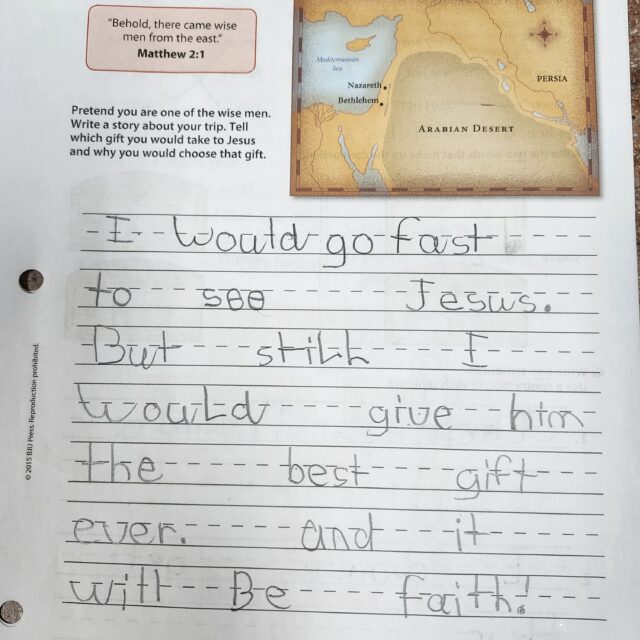 "Behold, there came wise
men from the east."
Matthew 2:1
Mediterranean
Sea
Nazareth
Bethlehem
PERSIA
ARABIAN DESERT
Pretend you are one of the wise men.
Write a story about your trip. Tell
which gift you would take to Jesus
and why you would choose that gift.
I would go fast
to see Jesus.
But still I
would give him
the best gift
ever. and it
will Be faith!
© 2015 BJU Press. Reproduction prohibited.